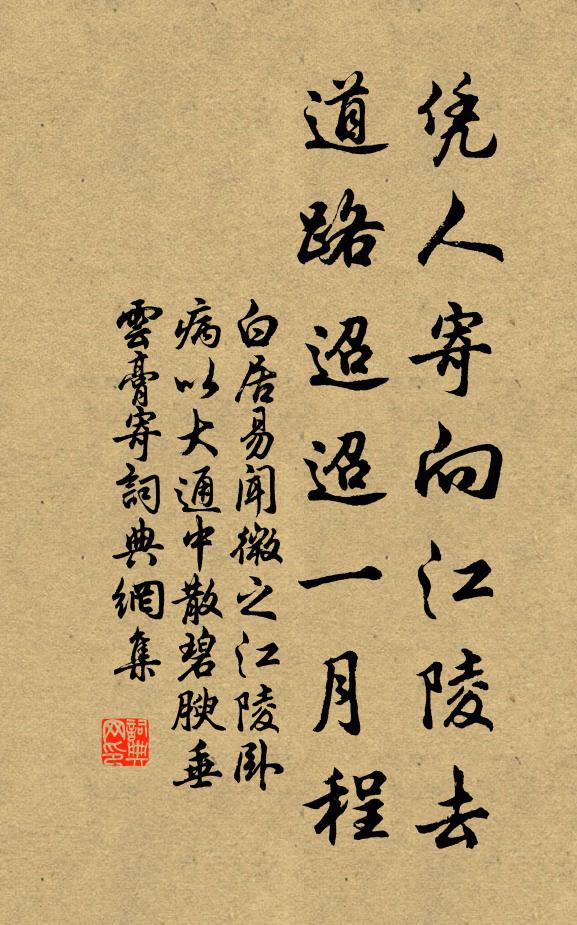 凭人寄向江陵去
道路迢迢一月程
白居易聞微之江陵卧
病以大通中散碧腴垂
雲膏寄詞典網集
詞典
网印